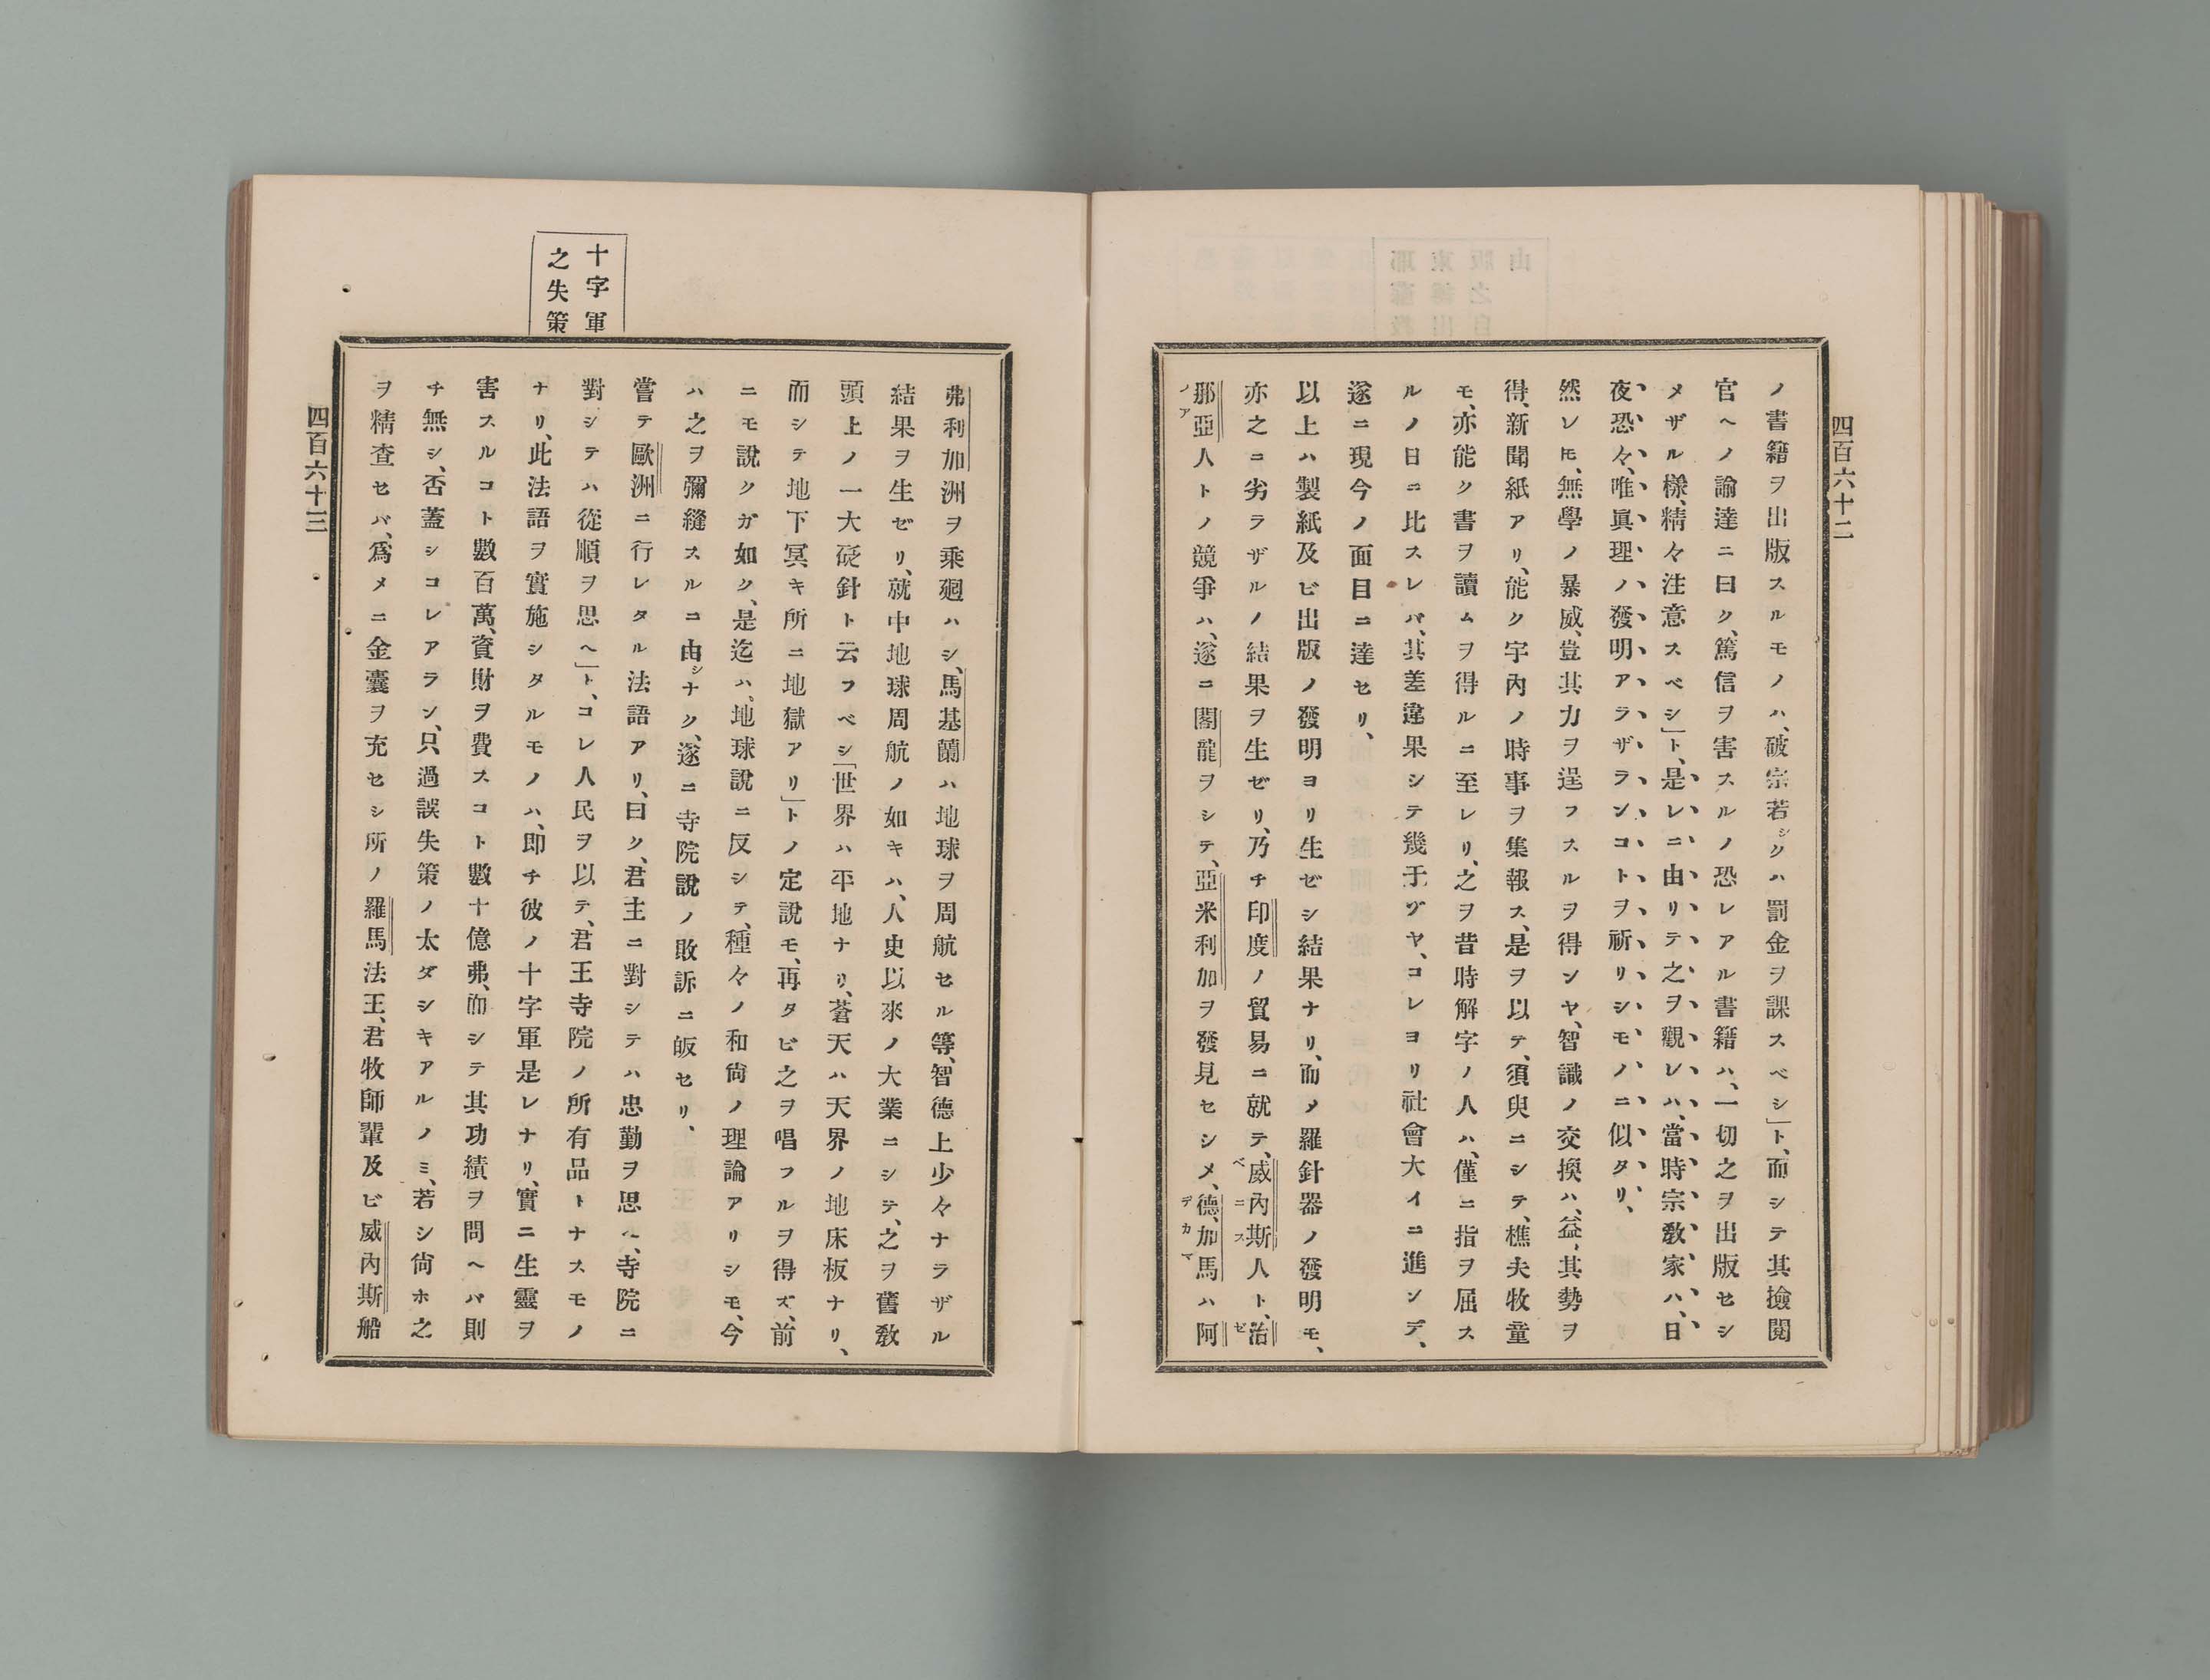 四百六十二
ノ書籍ヲ出版スルモノハ、破宗若シクハ罰金ヲ課スベシ」ト、而シテ其撿閲
官ヘノ諭達ニ曰ク、篤信ヲ害スルノ恐レアル書籍ハ、一切之ヲ出版セシ
メザル樣、精々注意スベシ」ト、是レニ由リテ之ヲ觀レハ、當時宗敎家ハ、日
夜恐々、唯眞理ノ發明アラザランコトヲ祈リシモノニ似タリ、
然レ𪜈、無學ノ暴威、豈其力ヲ逞フスルヲ得ンヤ、智識ノ交換ハ、益、其勢ヲ
得、新聞紙アリ、能ク宇內ノ時事ヲ集報ス、是ヲ以テ、須臾ニシテ、樵夫牧童
モ、亦能ク書ヲ讀ムヲ得ルニ至レリ、之ヲ昔時解字ノ人ハ、僅ニ指ヲ屈ス
ルノ日ニ比スレバ、其差違果シテ幾于ゾヤ、コレヨリ社會大イニ進ンデ、
遂ニ現今ノ面目ニ達セリ、
以上ハ製紙及ビ出版ノ發明ヨリ生ゼシ結果ナリ、而メ羅針器ノ發明モ、
亦之ニ劣ラザルノ結果ヲ生ゼリ、乃チ印度ノ貿易ニ就テ、威內斯人ト、治
ベニス
ゼ
那亞人トノ競爭ハ、遂ニ閣龍ヲシテ、亞米利加ヲ發見セシメ、德、加馬ハ阿
ノア
デカマ
弗利加洲ヲ乘廻ハシ、馬基蘭ハ地球ヲ周航セル等、智德上少々ナラザル
結果ヲ生ゼリ、就中地球周航ノ如キハ、人史以來ノ大業ニシテ、之ヲ舊敎
頭上ノ一大砭針ト云フベシ「世界ハ平地ナリ、蒼天ハ天界ノ地床板ナリ、
而シテ地下冥キ所ニ地獄アリ」トノ定說モ、再タビ之ヲ唱フルヲ得ズ、前
ニモ說クガ如ク、是迄ハ、地球說ニ反シテ、種々ノ和尙ノ理論アリシモ、今
ハ之ヲ彌縫スルニ由シナク、遂ニ寺院說ノ敗訴ニ皈セリ、
十字軍
之失策
嘗テ歐洲ニ行レタル法語アリ、曰ク、君主ニ對シテハ忠勤ヲ思ヘ、寺院ニ
對シテハ從順ヲ思ヘ」ト、コレ人民ヲ以テ、君王寺院ノ所有品トナスモノ
ナリ、此法語ヲ實施シタルモノハ、即チ彼ノ十字軍是レナリ、實ニ生靈ヲ
害スルコト數百萬、資財ヲ費スコト數十億弗、而シテ其功績ヲ問ヘバ則
チ無シ、否蓋シコレアラン、只過誤失策ノ太ダシキアルノミ、若シ尙ホ之
ヲ精査セバ、爲メニ金囊ヲ充セシ所ノ羅馬法王、君牧師輩及ビ威內斯船
四百六十三